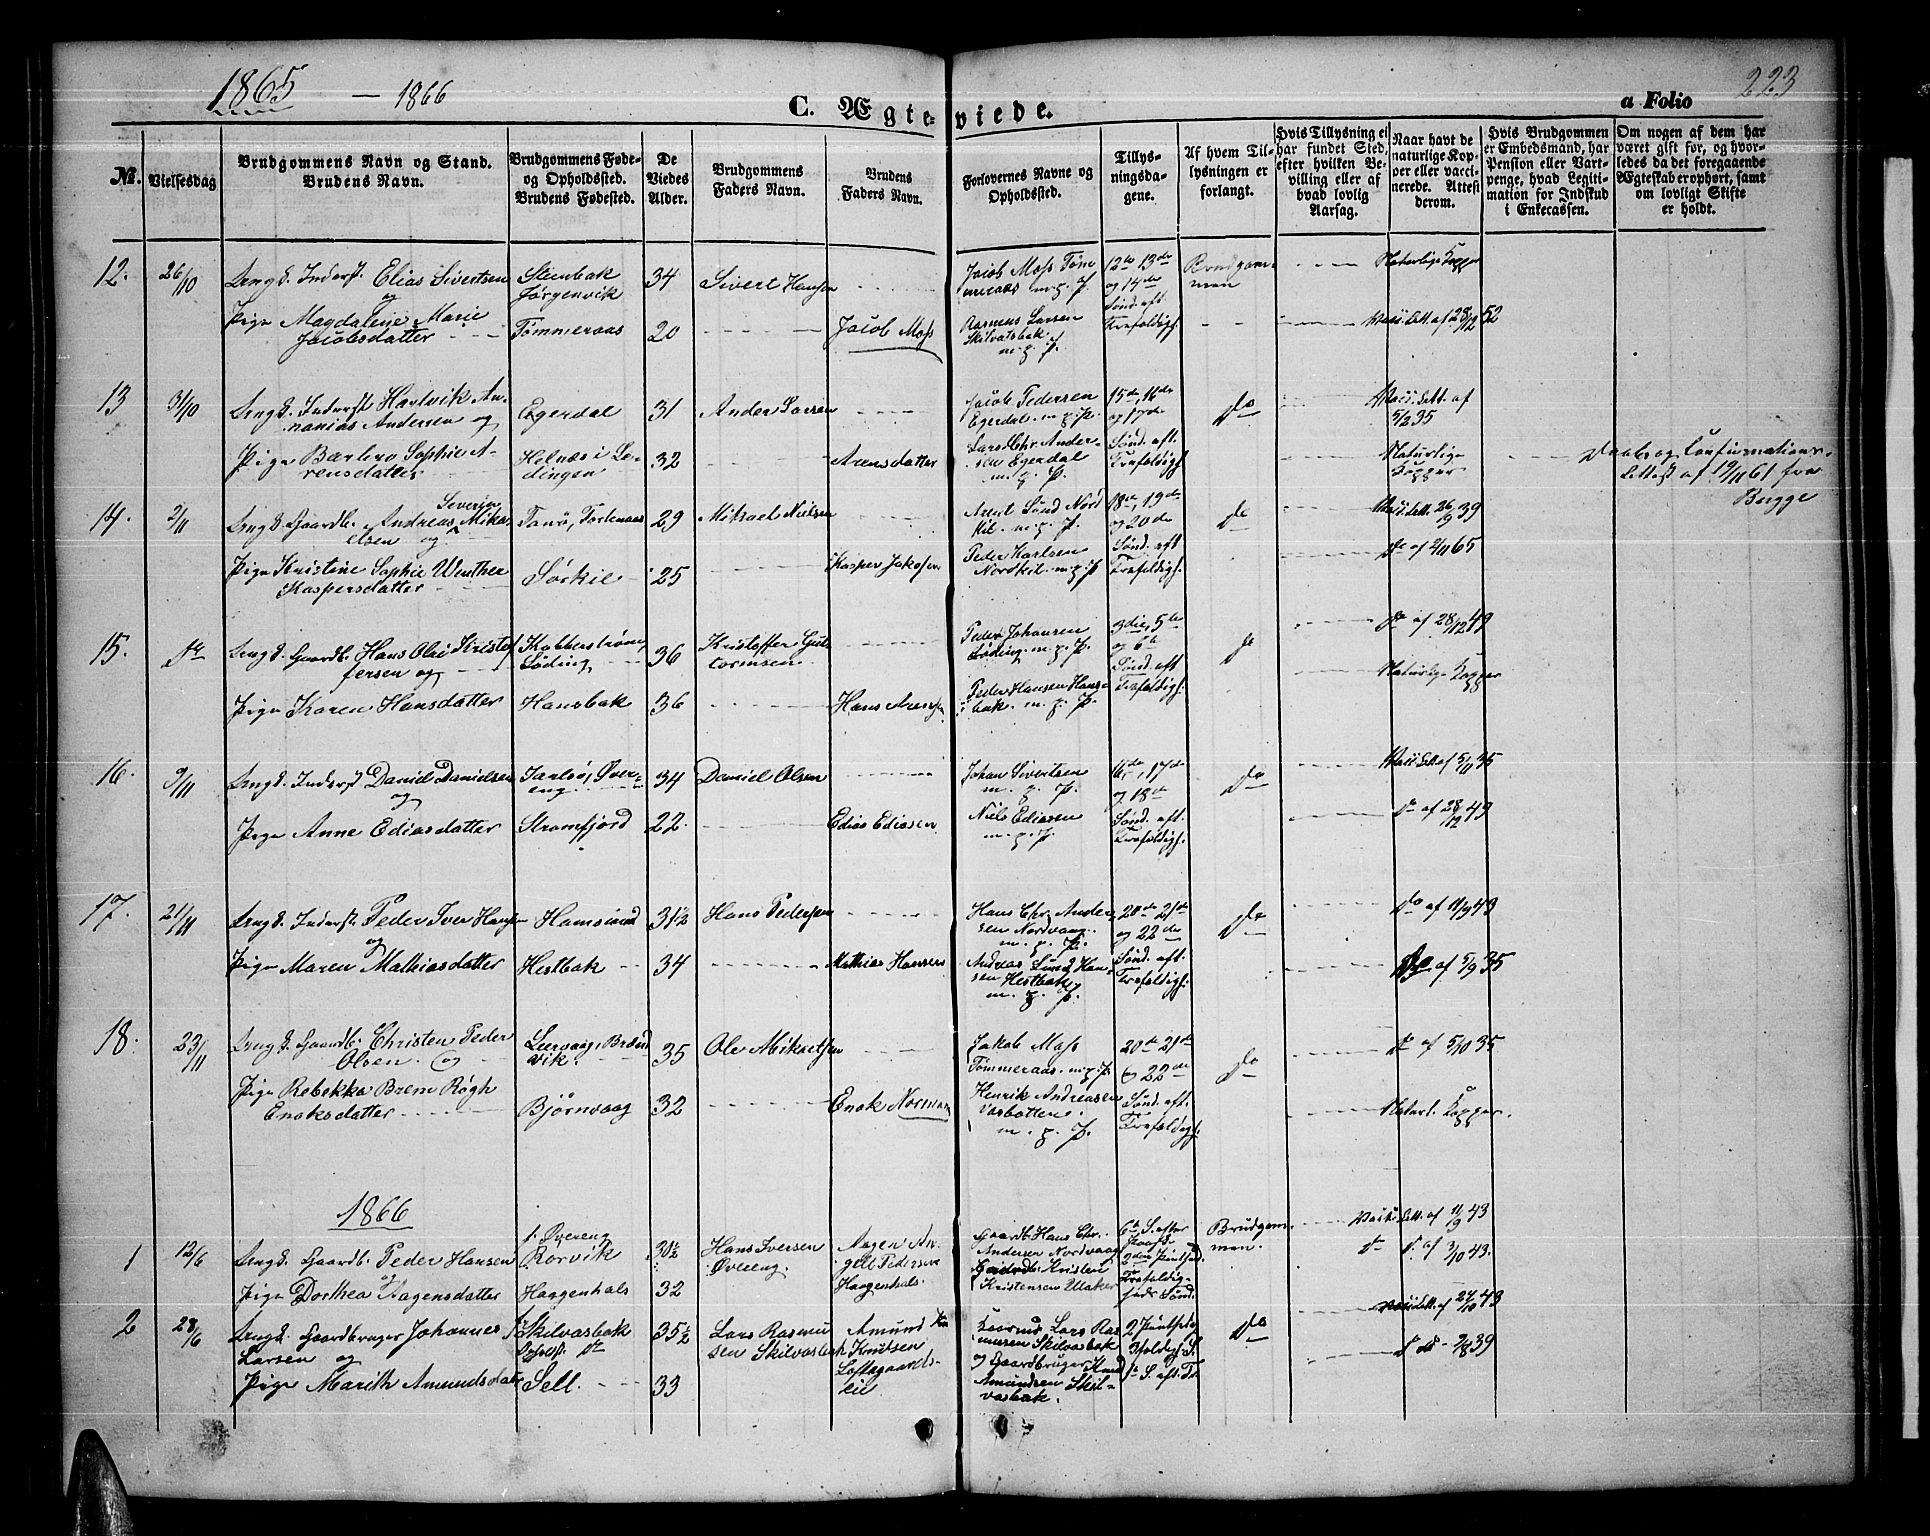 1865 - 1866
223
C. Ægteviede.
a Folio
No.
Vielsesdag
Brudgommens Navn og Stand.
Brudens Navn.
Brudgommens Føde-
og Opholdssted.
Brudens Fødested.
De
Viedes
Alder.
Brudgommens
Faders Navn.
Brudens
Faders Navn.
Forlovernes Navne og
Opholdssted.
Tillys-
ningsda-
gene.
Af hvem Til-
lysningen er
forlangt.
Hvis Tillysning ei
har fundet Sted,
efter hvilken Be-
villing eller af
hvad lovlig
Aarsag.
Naar havt de
naturlige Kop-
per eller vacci-
nerede. Attest
derom.
Hvis Brudgommen
er Embedsmand, har
Pension eller Vart-
penge, hvad Legiti-
mation for Indskud
i Enkecassen.
Om nogen af dem har
været gift før, og hvor-
ledes da det foregaaende
Ægteskab er ophørt, samt
om lovligt Skifte
er holdt.
12. 26/10 Ungk. Inderst. Elias Sivertsen
og
Pige Magdalene Marie
Jacobsdatter
Steenbak
Jørgenvik
Tømmeraas
34
20
Sivert Hansen
Jacob Moss
Jacob Moss Tøm
meraas m. p. P.
Rasmus Larsen
Skilvatsbak
m. p. P.
12te 13de
og 14de
Sønd. eft.
Trefoldigh.
Brudgom-
men
Naturlige Kopper
Vacc. Att. af 28/12 52
13 31/10 Ungk. Inderst Hartvik An-
nanias Andersen og
Pige Barbro Sophie A-
rensdatter
Egerdal
Holnæs i Lø-
dingen
31
32
Anders Larsen
Arensdatter
Jacob Pedersen
Egerdal. m. p. P.
Lars Chr. Ander-
sen Egerdal
m. p. P.
15de, 16de
og 17de
Sønd. eft.
Trefoldigh.
Do
Vacc. Att. af
5/12 35
Naturlige
Kopper
Daabs og Confirmations-
Attest af 19/11 61 fra
Bugge
14. 2/11 Ungk. Gaardb. Andreas Severin Mika-
elsen og
Pige Kristine Sophie Winther
Kaspersdatter
Tanø,
Sørkil
29
25
Mikael Nielsen
Kasper Jakobsen
Arnt Lund Nord
kil. m. p. P.
Peder Karlsen
Nordkil. m. p. P.
18de, 19de
og 20de
Sønd. eft
Trefoldigh.
Do
Vacc. Att. 26/9 39
Do af 2/11 65
15. Do Ungk. Gaardb. Hans Olai Kristof
fersen og
Pige Karen Hansdatter
Kobberstrøm,
Løding
Hansbak
36
36
Kristoffer Gut
tormsen
Hans Arensen
Peder Johansen
Løding. m. p. P.
Peder Hansen Hans-
bak. m. p. P.
3die, 5te
og 6te
Sønd. eft
Trefoldigh.
Do
Do af 28/12 49
Naturlige Kopper
16. 9/11 Ungk. Inderst Daniel Danielsen
og
Pige Anne Ediasdatter
Øver-
eng.
Stromfjord
34
22.
Daniel Olsen
Edias Ediasen
Johan Sivertsen
m. p. P.
Niels Ediasen
m. p. P.
16de, 17de
og 18de
Sønd. eft.
Trefoldigh.
Do
Vacc. Att. af 5/11 35
Do af 28/12 49
17. 21/11 Ungk. Inderst. Peder Iver Hansen
og
Pige Maren Mathiasdatter
Hamsund
Hestbak
31½
34
Hans Pedersen
Mathias Hansen
Hans Chr. Ander-
sen Nordvaag.
m. p. P.
Andreas Lund Han-
sen Hestbak
m. p. P.
20de 21de
og 22de
Sønd. eft.
Trefoldigh.
Do
Do af 11/9 43
Do af 5/9 35
18. 23/11 Ungk. Gaardb. Christen Peder
Olsen. og
Pige Rebekka Brem Røgh
Enoksdatter
Leervaag, Brænd
vik.
Bjørnvaag
35
32
Ole Mikaelsen
Enok Norman
Jakob Moss
Tømmeraas. m. p. P.
Henrik Andreasen
Vasbotten.
m. p. P.
20de 21de
og 22de
Sønd. eft.
Trefoldigh.
Do
Do af 5/10 35
Naturl. Kopper.
1866
1 12/6 Ungk. Gaardb. Peder Hansen
og
Pige Dorthea Aagensdatter
f. Øvereng
Rørvik
Haagenhals
30½
32
Hans Iversen
Øvereng.
Aagen An-
gell Pedersen
Haagenhals.
Gaardb. Hans Chr.
Andersen Nordvaag
Gaardb. Kristen
Kristensen Ulsaker
6te S. efter
Paaske
2den Pintsed.
Trefoldig-
heds Sønd.
Brudgom-
men.
Vacc. Att. af 11/9 43
Do Do af 3/10 43.
2 28/6 Ungk. Gaardbruger Johannes
Larsen og
Pige Marith Amundsdatr
f. Skilvasbak
Opholdst. Do
Sell.
35½
33
Lars Rasmu
sen Skilvasbak
Amund
Knudsen
Loftsgaards-
lie
Lars Ras
musen Skilvasbak
og Gaardbruger Knud
Amundsen Skil-
vasbak.
2 Pintsed.
Trfoldigh. S.
1ste S. eft. Tr
Do
Vacc. Att. af 27/10 43
Do Do 2/8 39